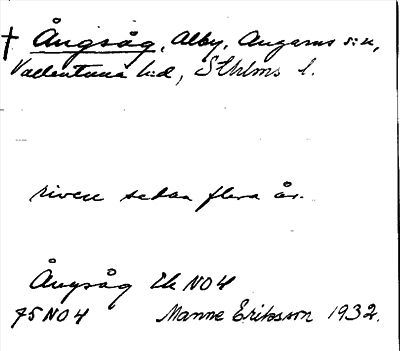 † Ångsåg, Alby, Angarns s:n,
Vallentuna hd, Sthlms l.
riven sedan flera år.
Ångsåg Ek NO4
75 NO4 Manne Eriksson 1932.